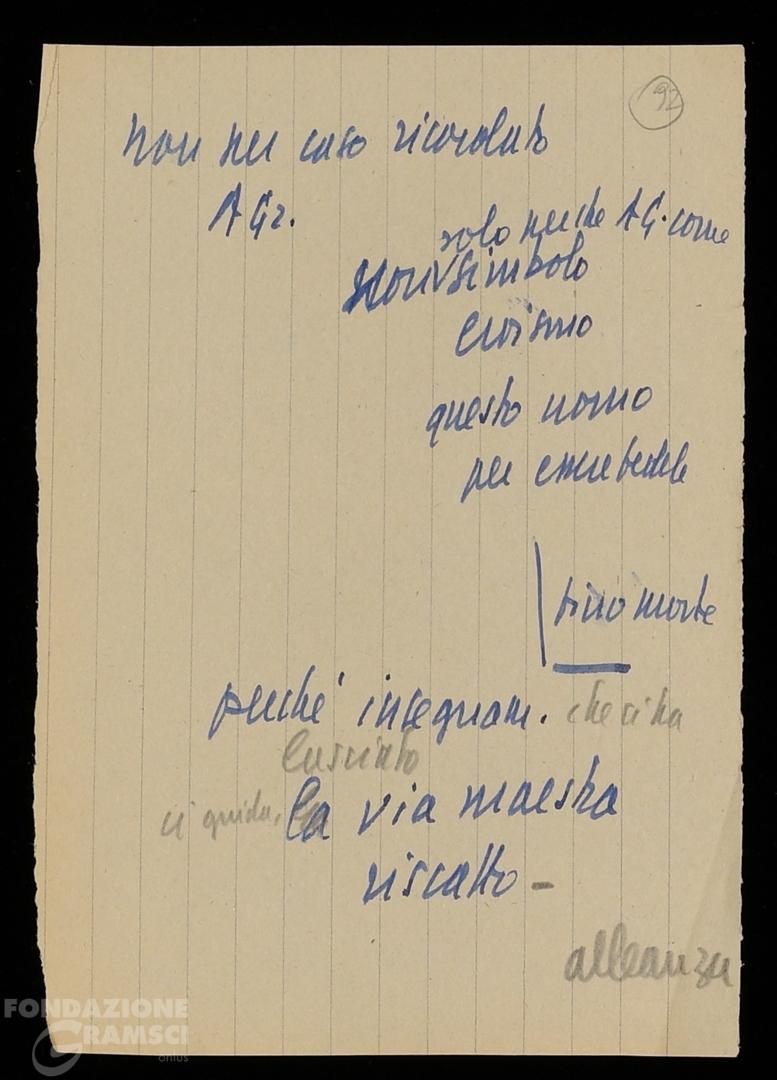 92
non per caso ricordato
A Gr.
solo perché A G. come
non simbolo
eroismo
questo uomo
per essere fedele
fino morte
perché insegnam. che ci ha
lasciato
ci guida, la via maestra
riscatto –
alleanza
FONDAZIONE
GRAMSCI
onlus